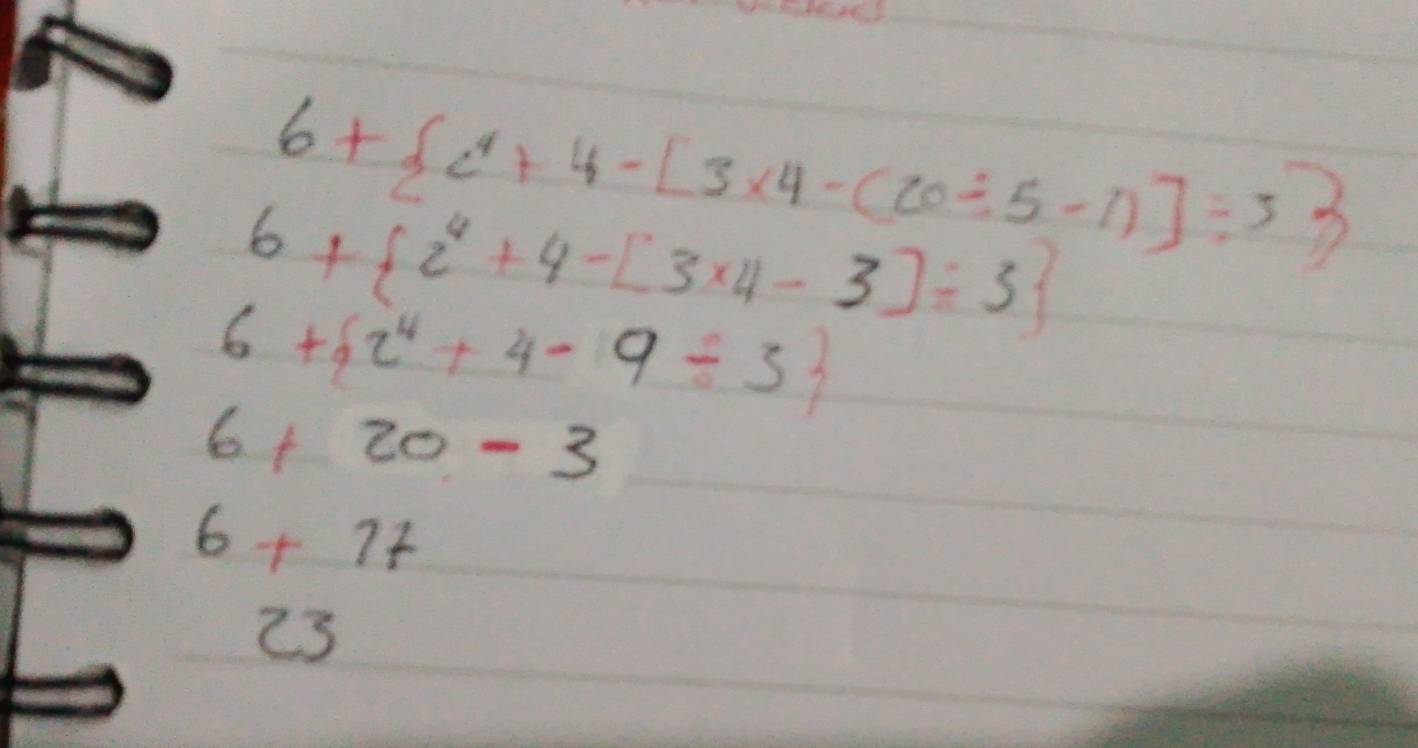 6 + {2⁴ + 4 - [3 × 4 - (20 ÷ 5 - 1)] ÷ 3}
6 + {2⁴ + 4 - [3 × 4 - 3] ÷ 3}
6 + {2⁴ + 4 - 9 ÷ 3}
6 + 20 - 3
6 + 17
23